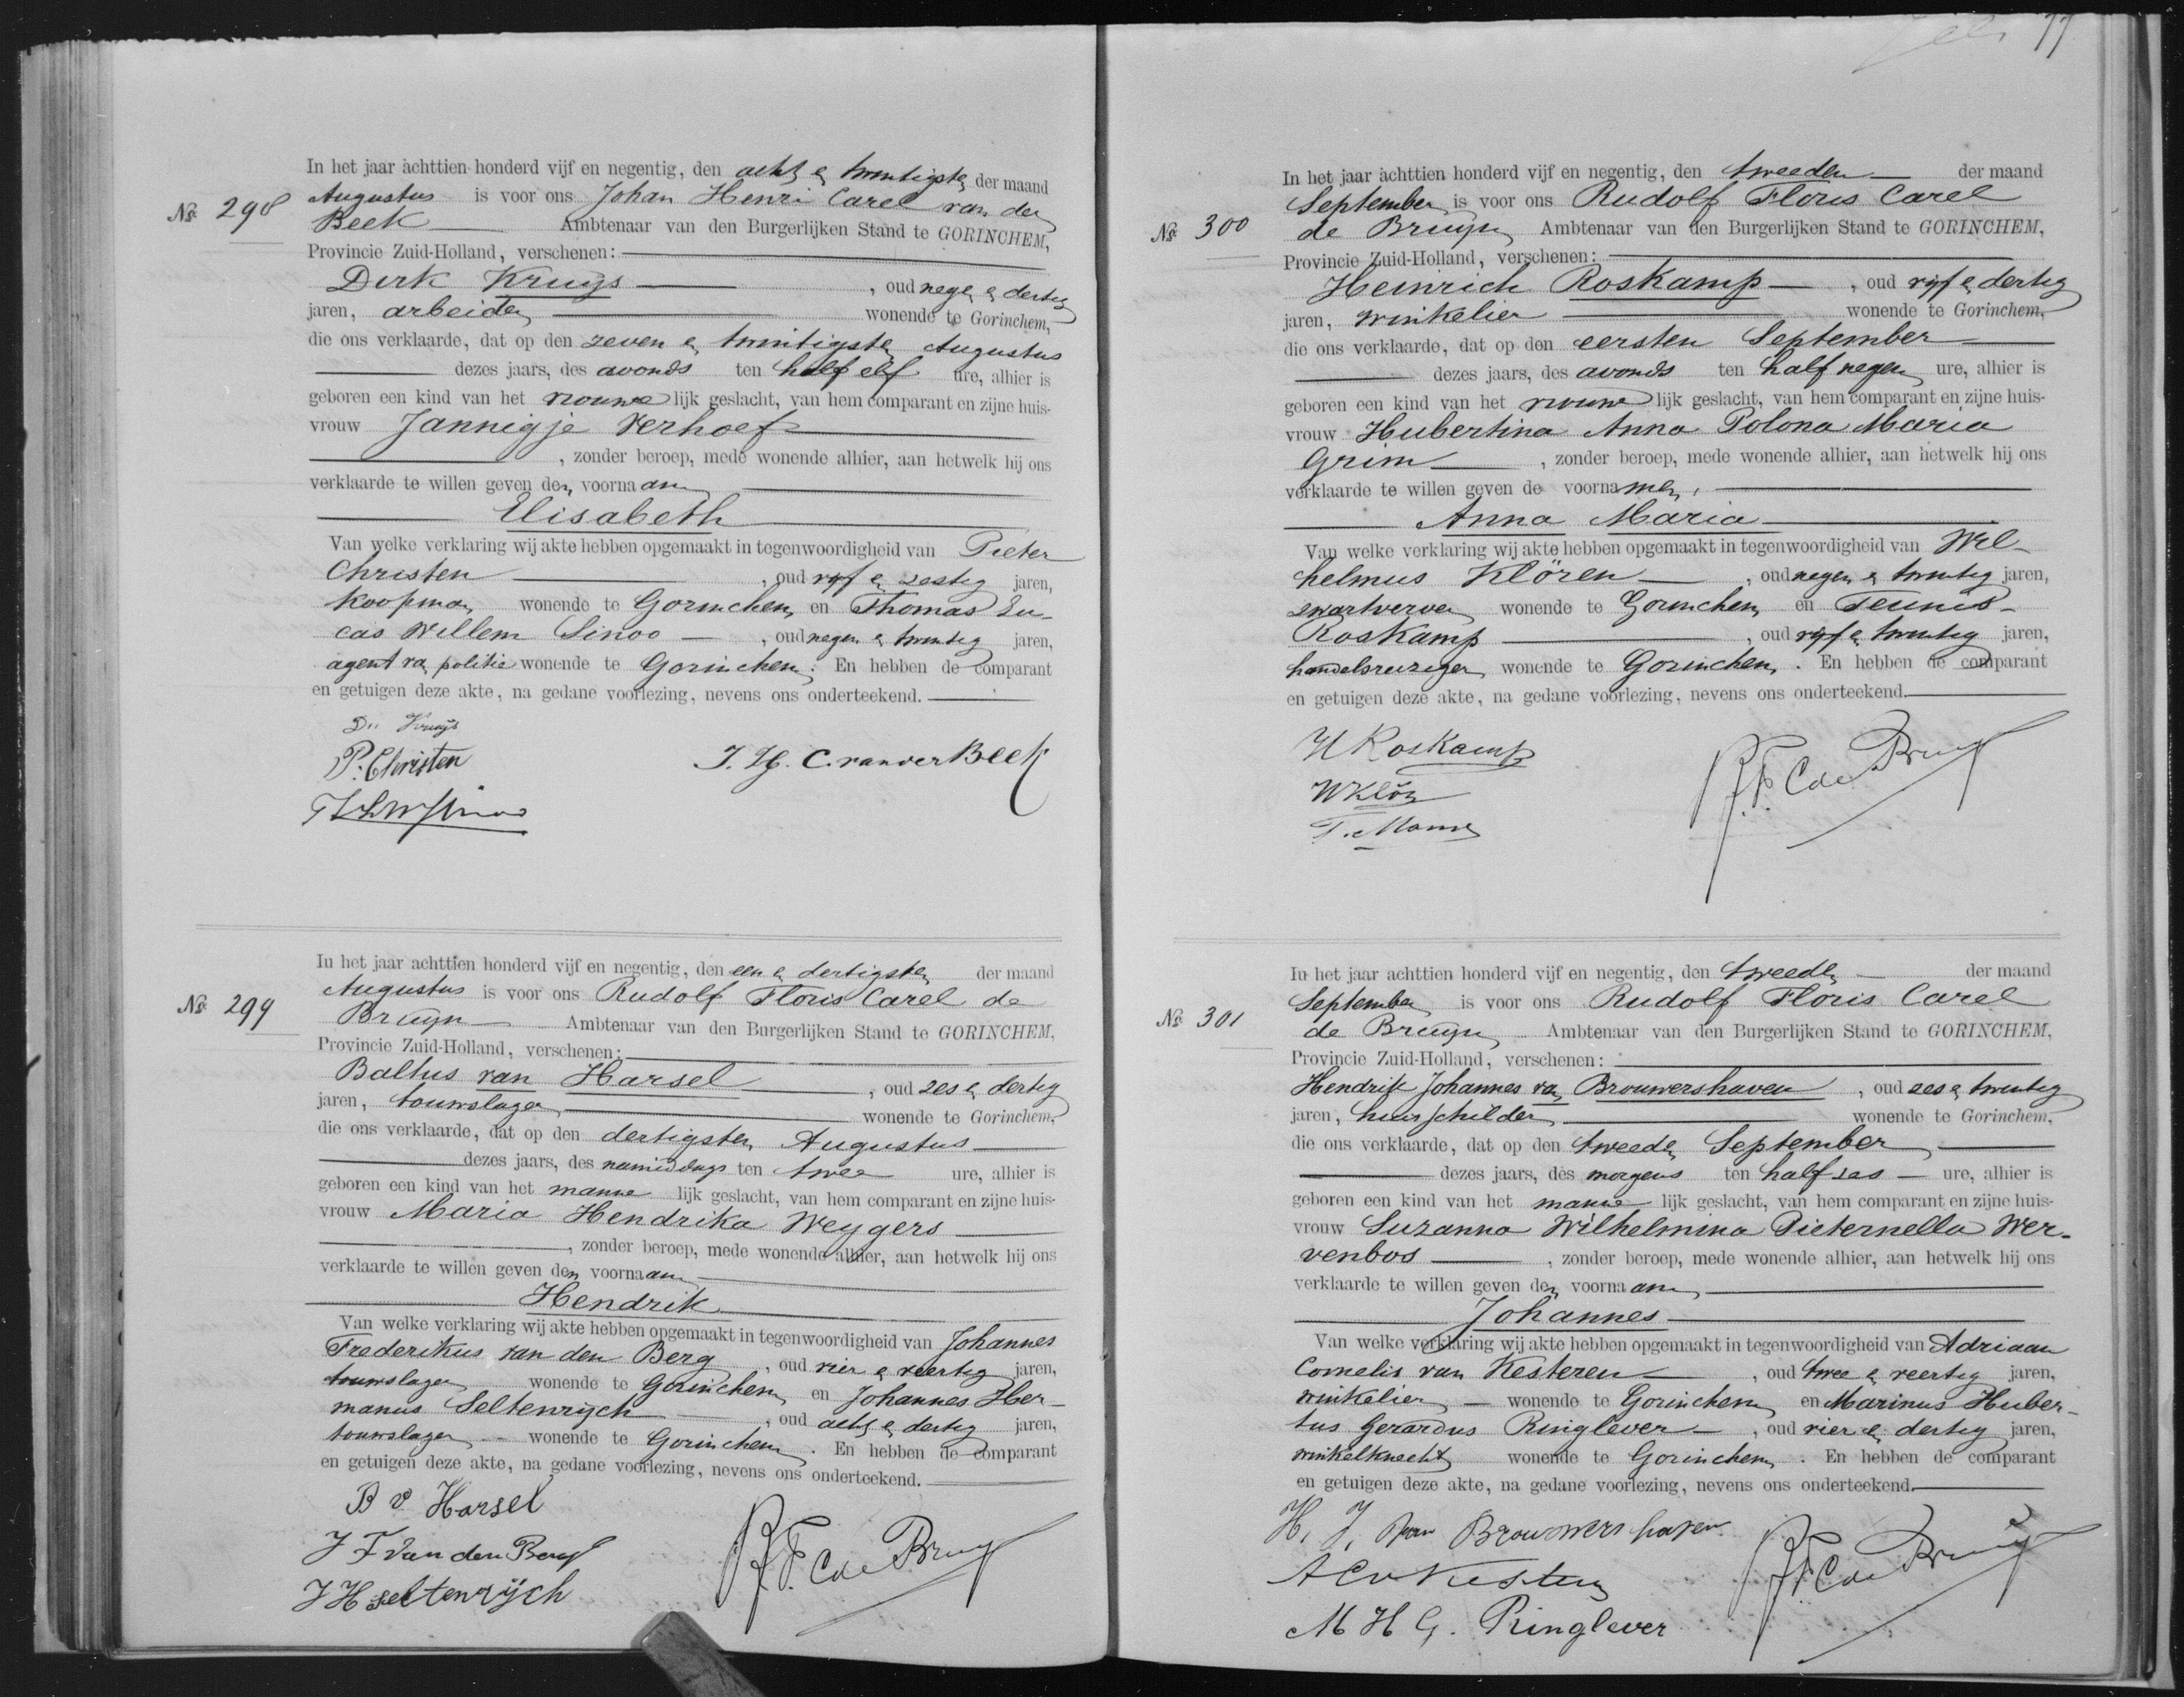 77
In het jaar achttien honderd vijf en negentig, den acht en twintigsten der maand
Nº 298
Augustus is voor ons Johan Henri Carel van der
Beek Ambtenaar van den Burgerlijken Stand te GORINCHEM,
Provincie Zuid-Holland, verschenen:
Dirk Kruijs , oud negen en dertig
jaren, arbeider wonende te Gorinchem,
die ons verklaarde, dat op den zeven en twintigsten Augustus
dezes jaars, des avonds ten half elf ure, alhier is
geboren een kind van het vrouwelijk geslacht, van hem comparant en zijne huis-
vrouw Jannigje Verhoef
, zonder beroep, mede wonende alhier, aan hetwelk hij ons
verklaarde te willen geven den voornaam
Elisabeth
Van welke verklaring wij akte hebben opgemaakt in tegenwoordigheid van Pieter
Christen , oud vijf en zestig jaren,
koopman wonende te Gorinchem en Thomas Lu-
cas Willem Sinoo , oud negen en twintig jaren,
agent van politie wonende te Gorinchem. En hebben de comparant
en getuigen deze akte, na gedane voorlezing, nevens ons onderteekend.
D. Kruijs
P. Christen
J. H. C. van der Beek
In het jaar achttien honderd vijf en negentig, den een en dertigsten der maand
Nº 299
Augustus is voor ons Rudolf Floris Carel de
Bruijn Ambtenaar van den Burgerlijken Stand te GORINCHEM,
Provincie Zuid-Holland, verschenen:
Baltus van Harsel , oud zes en dertig
jaren, touwslager wonende te Gorinchem,
die ons verklaarde, dat op den dertigsten Augustus
dezes jaars, des namiddags ten twee ure, alhier is
geboren een kind van het mannelijk geslacht, van hem comparant en zijne huis-
vrouw Maria Hendrika Weygers
, zonder beroep, mede wonende alhier, aan hetwelk hij ons
verklaarde te willen geven den voornaam
Hendrik
Van welke verklaring wij akte hebben opgemaakt in tegenwoordigheid van Johannes
Frederikus van den Berg , oud vier en veertig jaren,
touwslager wonende te Gorinchem en Johannes Her-
manus Seltenrijch , oud acht en dertig jaren,
touwslager wonende te Gorinchem. En hebben de comparant
en getuigen deze akte, na gedane voorlezing, nevens ons onderteekend.
B v Harsel
J F van den Berg
J H Seltenrÿch
R. F. C de Bruijn
In het jaar achttien honderd vijf en negentig, den tweeden der maand
Nº 300
September is voor ons Rudolf Floris Carel
de Bruijn Ambtenaar van den Burgerlijken Stand te GORINCHEM,
Provincie Zuid-Holland, verschenen:
Heinrich Roskamp , oud vijf en dertig
jaren, winkelier wonende te Gorinchem,
die ons verklaarde, dat op den eersten September
dezes jaars, des avonds ten half negen ure, alhier is
geboren een kind van het vrouwelijk geslacht, van hem comparant en zijne huis-
vrouw Hubertina Anna Polona Maria
Grim , zonder beroep, mede wonende alhier, aan hetwelk hij ons
verklaarde te willen geven de voornamen,
Anna Maria
Van welke verklaring wij akte hebben opgemaakt in tegenwoordigheid van Wil-
helmus Klören , oud negen en twintig jaren,
zwartverver wonende te Gorinchem en Teunis
Roskamp , oud vijf en twintig jaren,
handelsreiziger wonende te Gorinchem. En hebben de comparant
en getuigen deze akte, na gedane voorlezing, nevens ons onderteekend.
H Roskamp
W Klör
R. F. C de Bruijn
In het jaar achttien honderd vijf en negentig, den tweeden der maand
Nº 301
September is voor ons Rudolf Floris Carel
de Bruijn Ambtenaar van den Burgerlijken Stand te GORINCHEM,
Provincie Zuid-Holland, verschenen:
Hendrik Johannes van Brouwershaven , oud zes en twintig
jaren, huisschilder wonende te Gorinchem,
die ons verklaarde, dat op den tweeden September
dezes jaars, des morgens ten half zes ure, alhier is
geboren een kind van het mannelijk geslacht, van hem comparant en zijne huis-
vrouw Suzanna Wilhelmina Pieternella Wer-
venbos , zonder beroep, mede wonende alhier, aan hetwelk hij ons
verklaarde te willen geven den voornaam
Johannes
Van welke verklaring wij akte hebben opgemaakt in tegenwoordigheid van Adriaan
Cornelis van Kesteren , oud twee en veertig jaren,
winkelier wonende te Gorinchem en Marinus Huber-
tus Gerardus Ringlever , oud vier en dertig jaren,
winkelknecht wonende te Gorinchem. En hebben de comparant
en getuigen deze akte, na gedane voorlezing, nevens ons onderteekend.
H. J. van Brouwershaven
A C v Kesteren
M H G. Ringlever
R. F. C de Bruijn